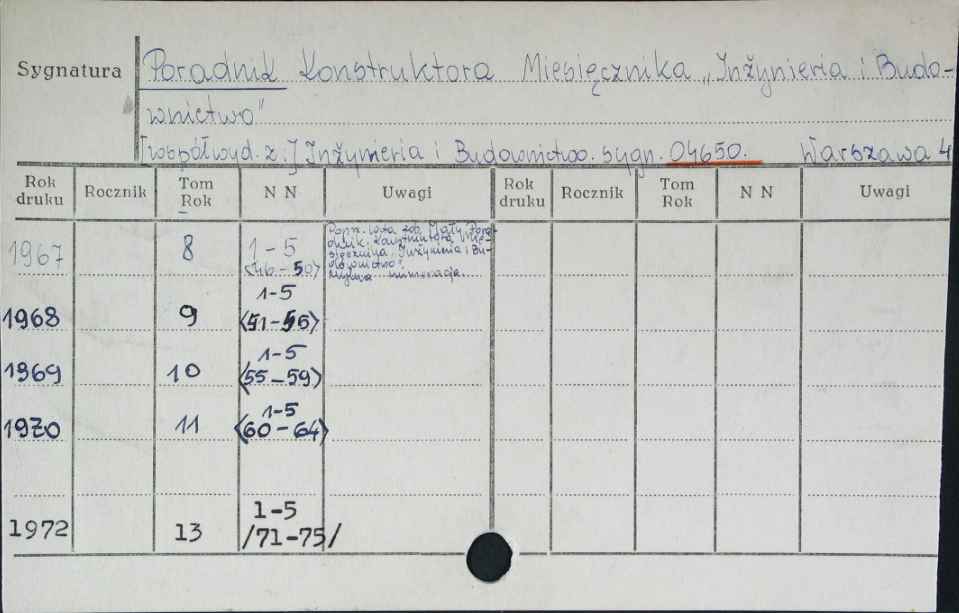 Sygnatura
Poradnik Konstruktora Miesięcznika „Inżynieria i Budo-
wnictwo"
[współwyd. z:] Inżynieria i Budownictwo. sygn. 04650. Warszawa 4
Rok druku Rocznik Tom Rok N N Uwagi Rok druku Rocznik Tom Rok N N Uwagi
1967 8 1-5 <46-50>
Mały Pora-
dnik Konstruktora Mie-
sięcznika „Inżynieria i Bu-
downictwo".
numeracja.
1968 9 1-5 <51-55>
1969 10 1-5 <55-59>
1970 11 1-5 <60-64>
1972 13 1-5 /71-75/